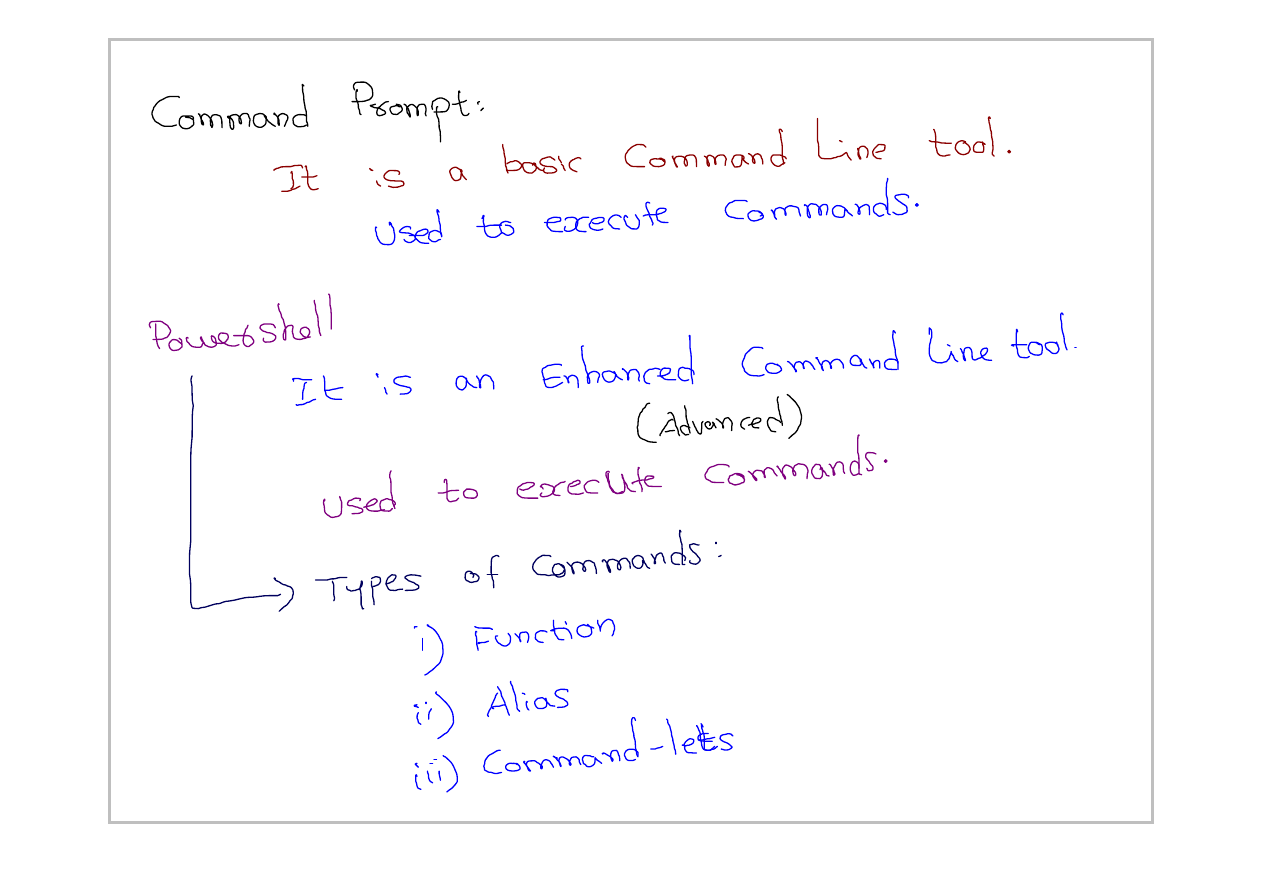 Command Prompt:
It is a basic Command Line tool.
Used to execute Commands.
Powershell
It is an Enhanced Command Line tool.
(Advanced)
Used to execute Commands.
Types of Commands:
i) Function
ii) Alias
iii) Command-lets